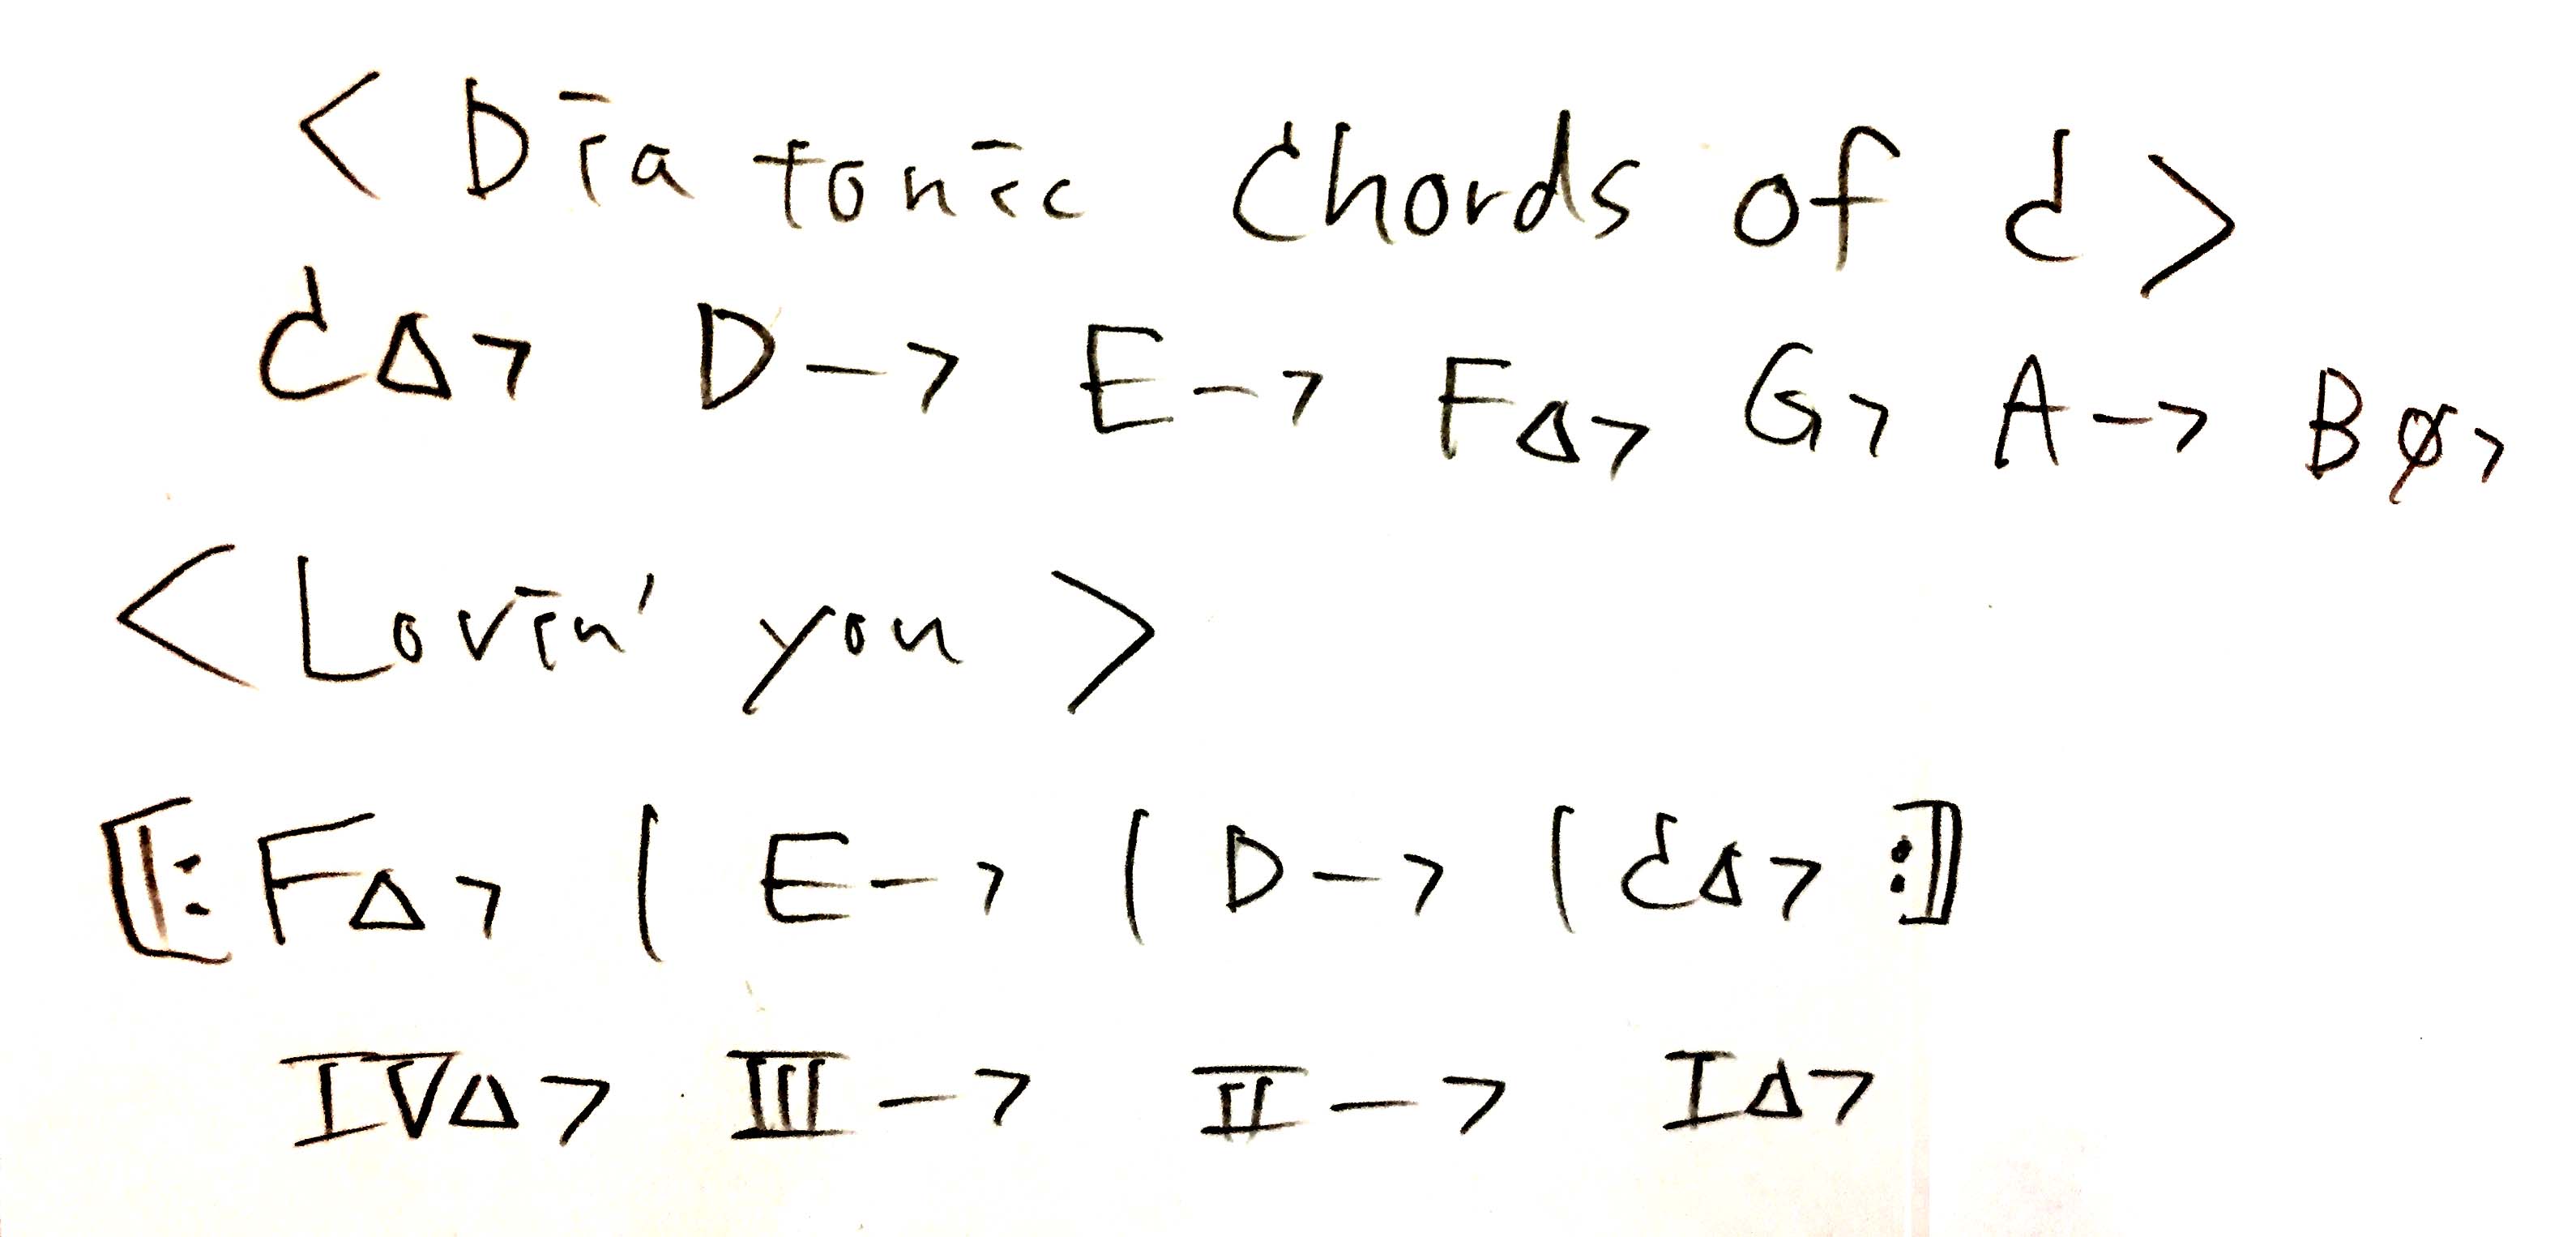 < Diatonic Chords of C >
CΔ7 D-7 E-7 FΔ7 G7 A-7 Bø7
< Lovin' you >
[|: FΔ7 | E-7 | D-7 | CΔ7 :|]
IVΔ7 III-7 II-7 IΔ7